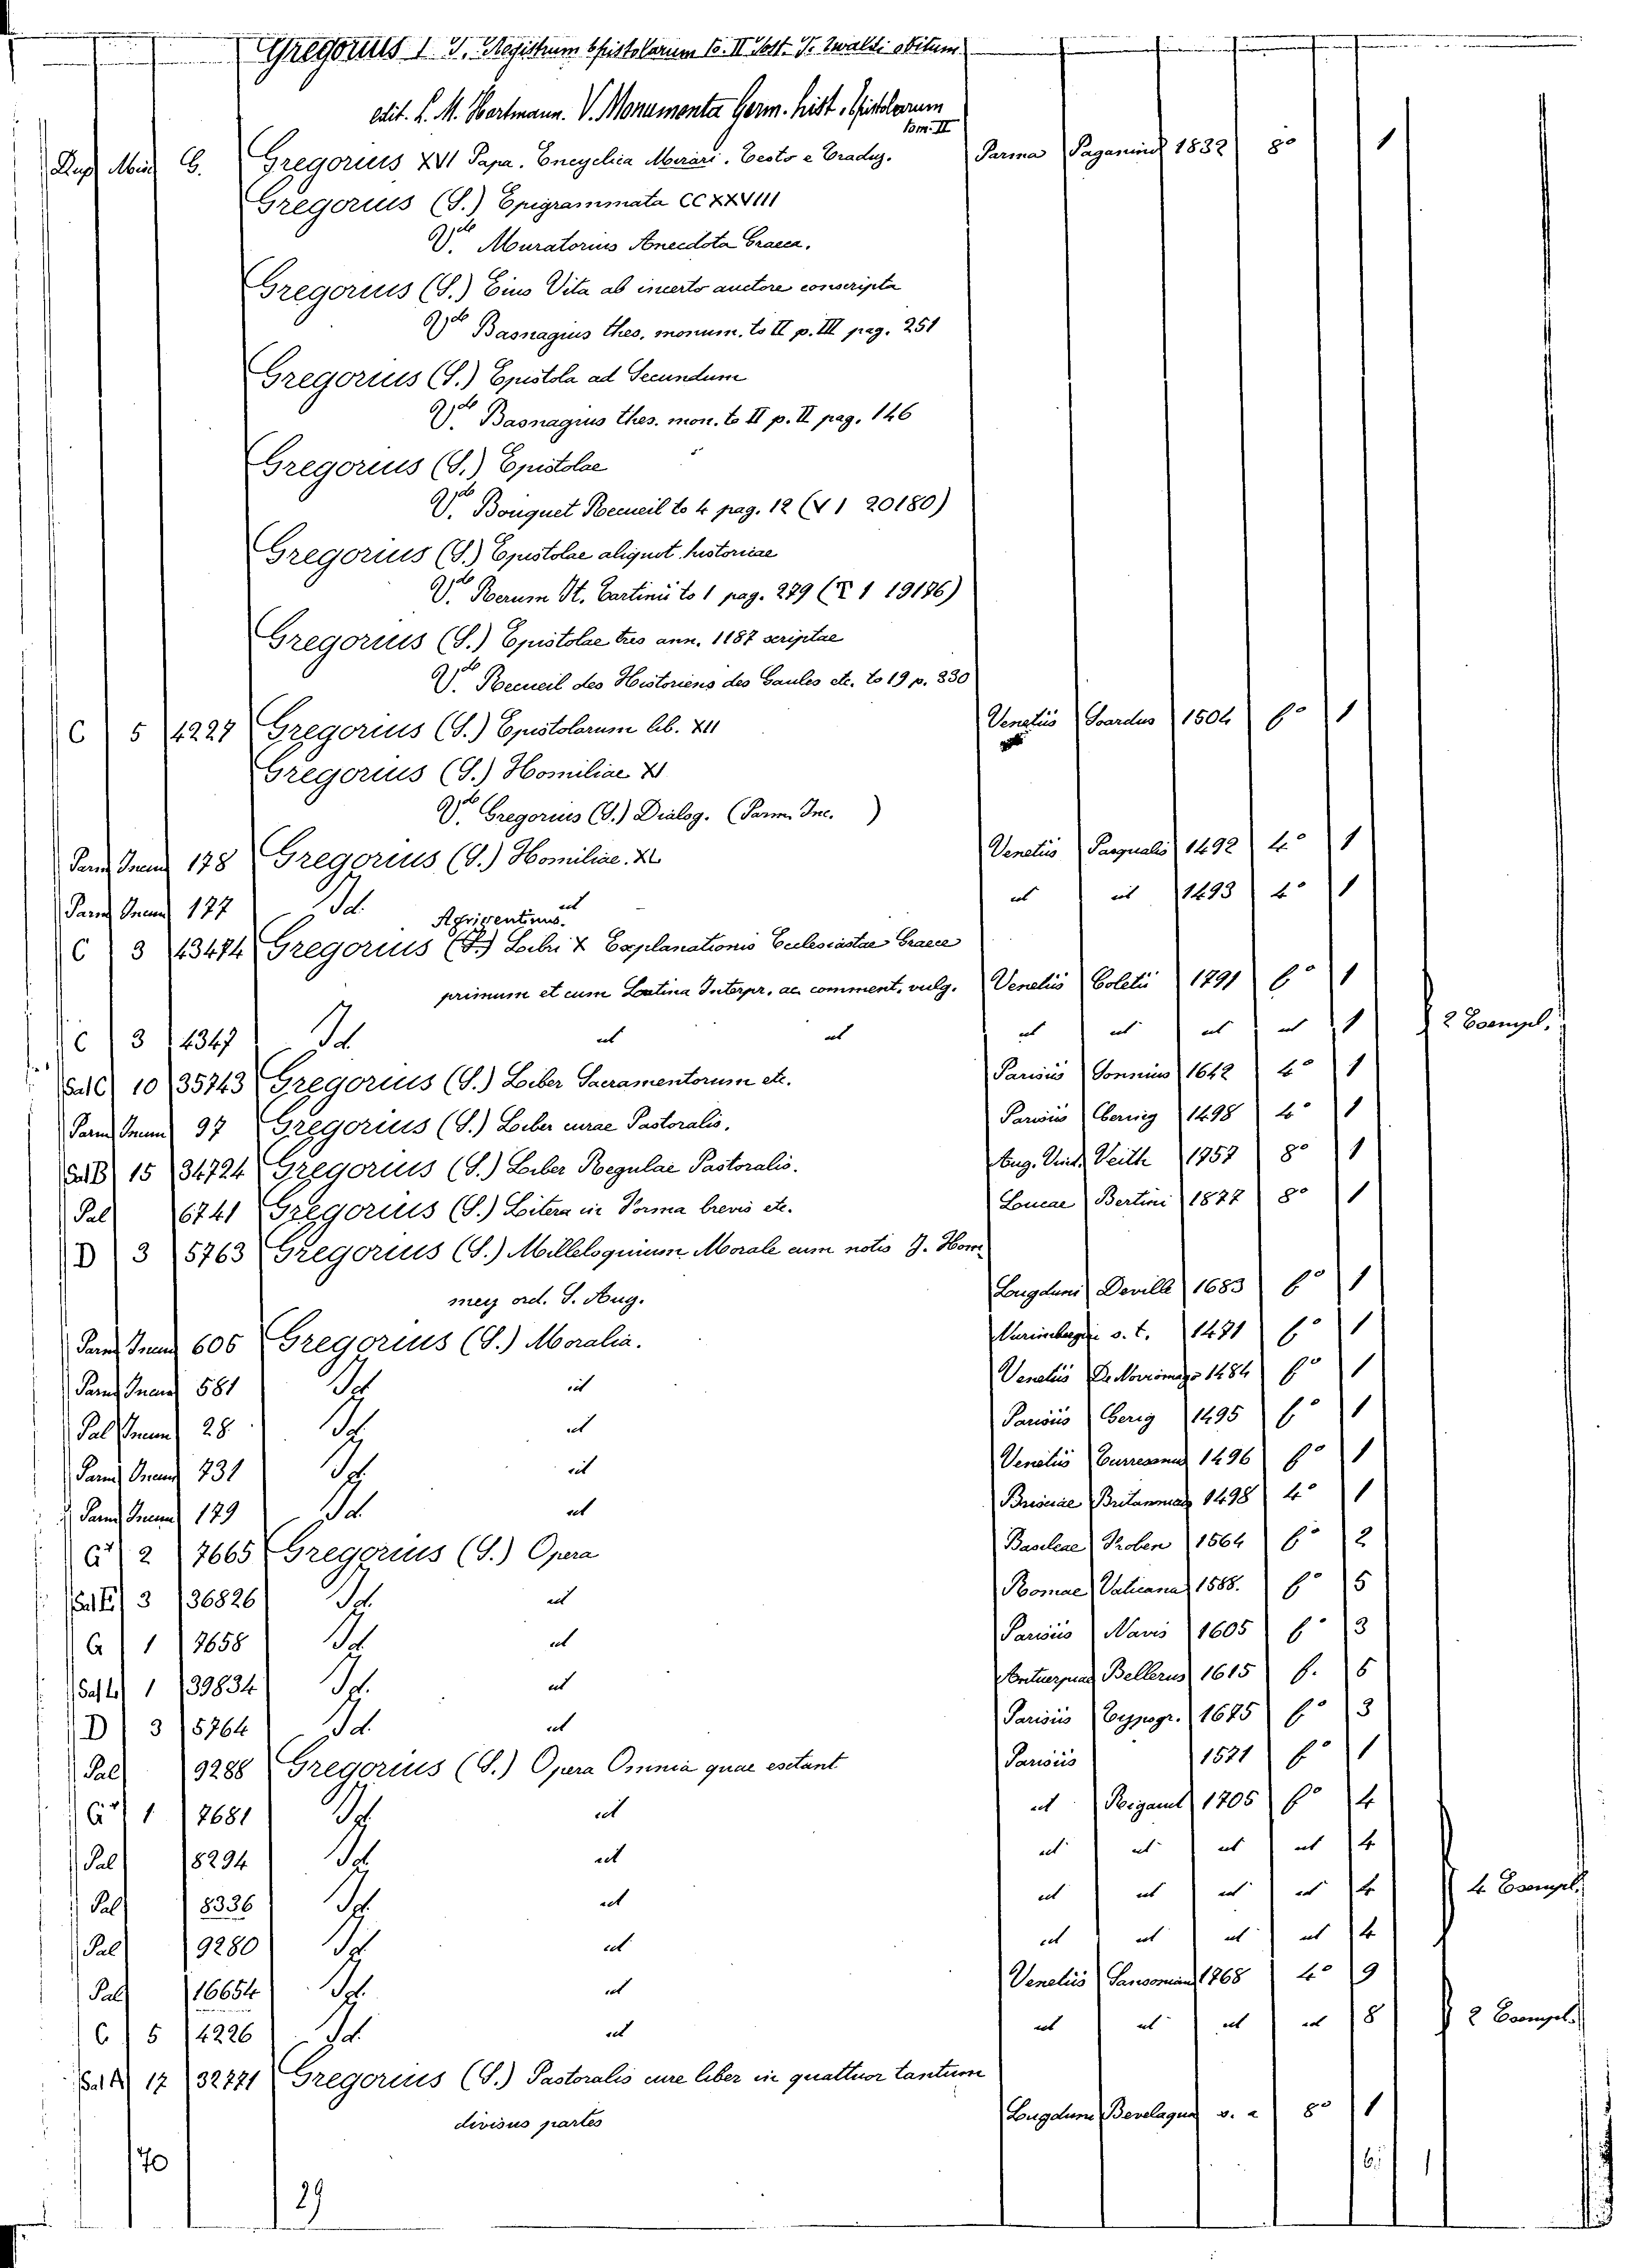 Gregorius I S. Registrum Epistolarum to. II Post P. Ewaldi obitum
edit. L. M. Hartmann. V. Monumenta Germ. hist. Epistolarum
tom. II
Gregorius XVI Papa. Encyclica Mirari. Testo e Traduz. Parma Paganini 1832 8° 1
Gregorius (S.) Epigrammata CCXXVIII
V.de Muratorius Anecdota Graeca.
Gregorius (S.) Eius Vita ab incerto auctore conscripta
V.de Basnagius thes. monum. to II p. III pag. 251
Gregorius (S.) Epistola ad Secundum
V.de Basnagius thes. mon. to II p. II pag. 146
Gregorius (S.) Epistolae
V.de Bouquet Recueil to 4 pag. 12 (V 1 20180)
Gregorius (S.) Epistolae aliquot historicae
V.de Rerum It. Tartinii to 1 pag. 279 (1 19176)
Gregorius (S.) Epistolae tres ann. 1187 scriptae
V.de Recueil des Historiens des Gaules etc. to 19 p. 330
C 5 4227 Gregorius (S.) Epistolarum lib. XII Venetiis Soardus 1504 f° 1
Gregorius (S.) Homiliae XL
V.de Gregorius (S.) Dialog. (Parm. Inc. )
Parm Incun 178 Gregorius (S.) Homiliae. XL Venetiis Pasqualis 1492 4° 1
Parm Incun 177 Id. ut ut ut 1493 4° 1
Agrigentinus
C 3 43474 Gregorius (S.) Libri X Explanationis Ecclesiastae Graece
primum et cum Latina Interpr. ac comment. vulg. Venetiis Coletii 1791 f° 1
C 3 4347 Id. ut ut ut ut ut ut 1 2 Esempl.
Sal C 10 35743 Gregorius (S.) Liber Sacramentorum etc. Parisiis Sonnius 1642 4° 1
Parm Incun 97 Gregorius (S.) Liber curae Pastoralis. Parisiis Gering 1498 4° 1
Sal B 15 34724 Gregorius (S.) Liber Regulae Pastoralis. Aug. Vind. Veith 1757 8° 1
Pal 6741 Gregorius (S.) Litera in Forma brevis etc. Lucae Bertini 1877 8° 1
D 3 5763 Gregorius (S.) Milleloquium Morale cum notis J. Hom
mey ord. S. Aug. Lugduni Deville 1683 f° 1
Parm Incun 606 Gregorius (S.) Moralia. s. t. 1471 f° 1
Parm Incun 581 Id. ut Venetiis De Noviomago 1484 f° 1
Pal Incun 28 Id. ut Parisiis Gerig 1495 f° 1
Parm Incun 731 Id. ut Venetiis Torresanus 1496 f° 1
Parm Incun 179 Id. ut Brixiae Britannicus 1498 4° 1
G 2 7665 Gregorius (S.) Opera Basileae Froben 1564 f° 2
Sal E 3 36826 Id. ut Romae Vaticana 1588. f° 5
G 1 7658 Id. ut Parisiis Navis 1605 f° 3
Sal L 1 39834 Id. ut Antuerpiae Bellerus 1615 f. 5
D 3 5764 Id. ut Parisiis Typogr. 1675 f° 3
Pal 9288 Gregorius (S.) Opera Omnia quae extant Parisiis 1521 f° 1
G 1 7681 Id. ut ut Rigaud 1705 f° 4
Pal 8294 Id. ut ut ut ut ut 4
Pal 8336 Id. ut ut ut ut ut 4 4 Esempl.
Pal 9280 Id. ut ut ut ut ut 4
Pal 16654 Id. ut Venetiis Sansonian 1768 4° 9
C 5 4226 Id. ut ut ut ut ut 8 2 Esempl.
Sal A 17 32771 Gregorius (S.) Pastoralis cure liber in quattuor tantum
divisus partes Lugduni Bevelaqua s. a 8° 1
70
29